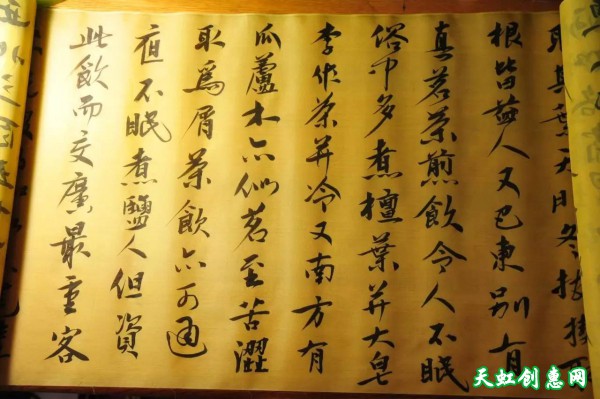 其葉天門冬拔揳取
根皆益人又巴東別有
真茗茶煎飲令人不眠
俗中多煮檀葉并大皂
李作茶并冷又南方有
瓜蘆木亦似茗至苦澀
取為屑茶飲亦可通
夜不眠煮鹽人但資
此飲而交廣最重客
天虹创惠网